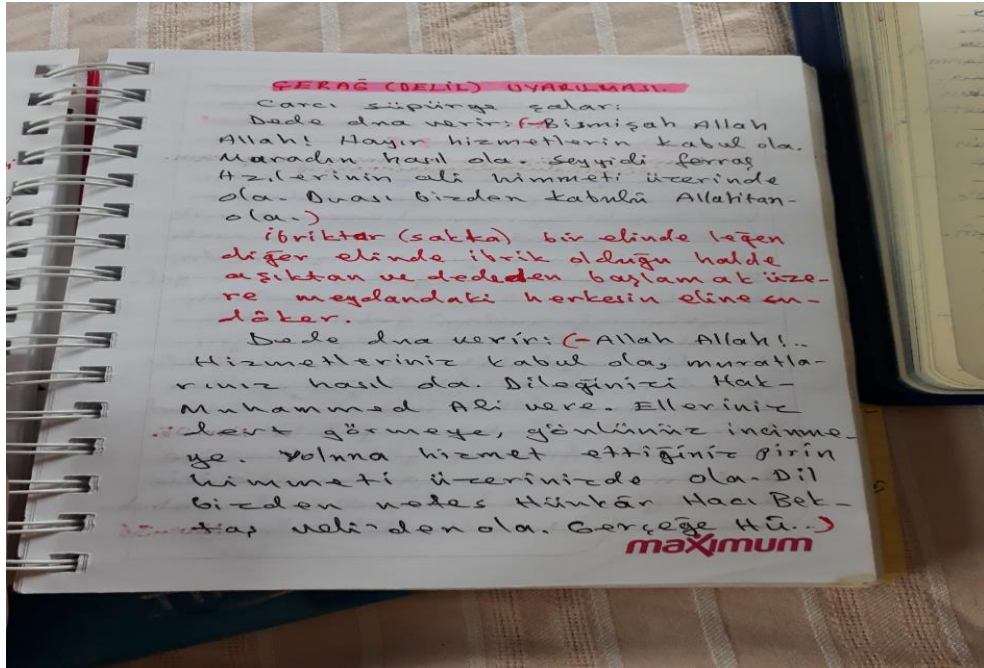 ÇERAĞ (DELİL) UYARILMASI.
Carcı süpürge çalar:
Dede dua verir: (-Bismişah Allah
Allah! Hayır hizmetlerin kabul ola.
Muradın hasıl ola. Seyyidi ferraş
Hz.lerinin ali himmeti üzerinde
ola. Duası bizden kabulü Allahtan-
ola.)
ibriktar (sakka) bir elinde leğen
diğer elinde ibrik olduğu halde
aşıktan ve dededen başlamak üze-
re meydandaki herkesin eline su-
döker.
Dede dua verir: (-Allah Allah!..
Hizmetleriniz kabul ola, muratla-
rınız hasıl ola. Dileğinizi Hak-
Muhammed Ali vere. Elleriniz
dert görmeye, gönlünüz incinme-
ye. Yoluna hizmet ettiğiniz pirin
himmeti üzerinizde ola. Dil
bizden nefes Hünkâr Hacı Bek-
taş veli'den ola. Gerçeğe Hû...)
maximum